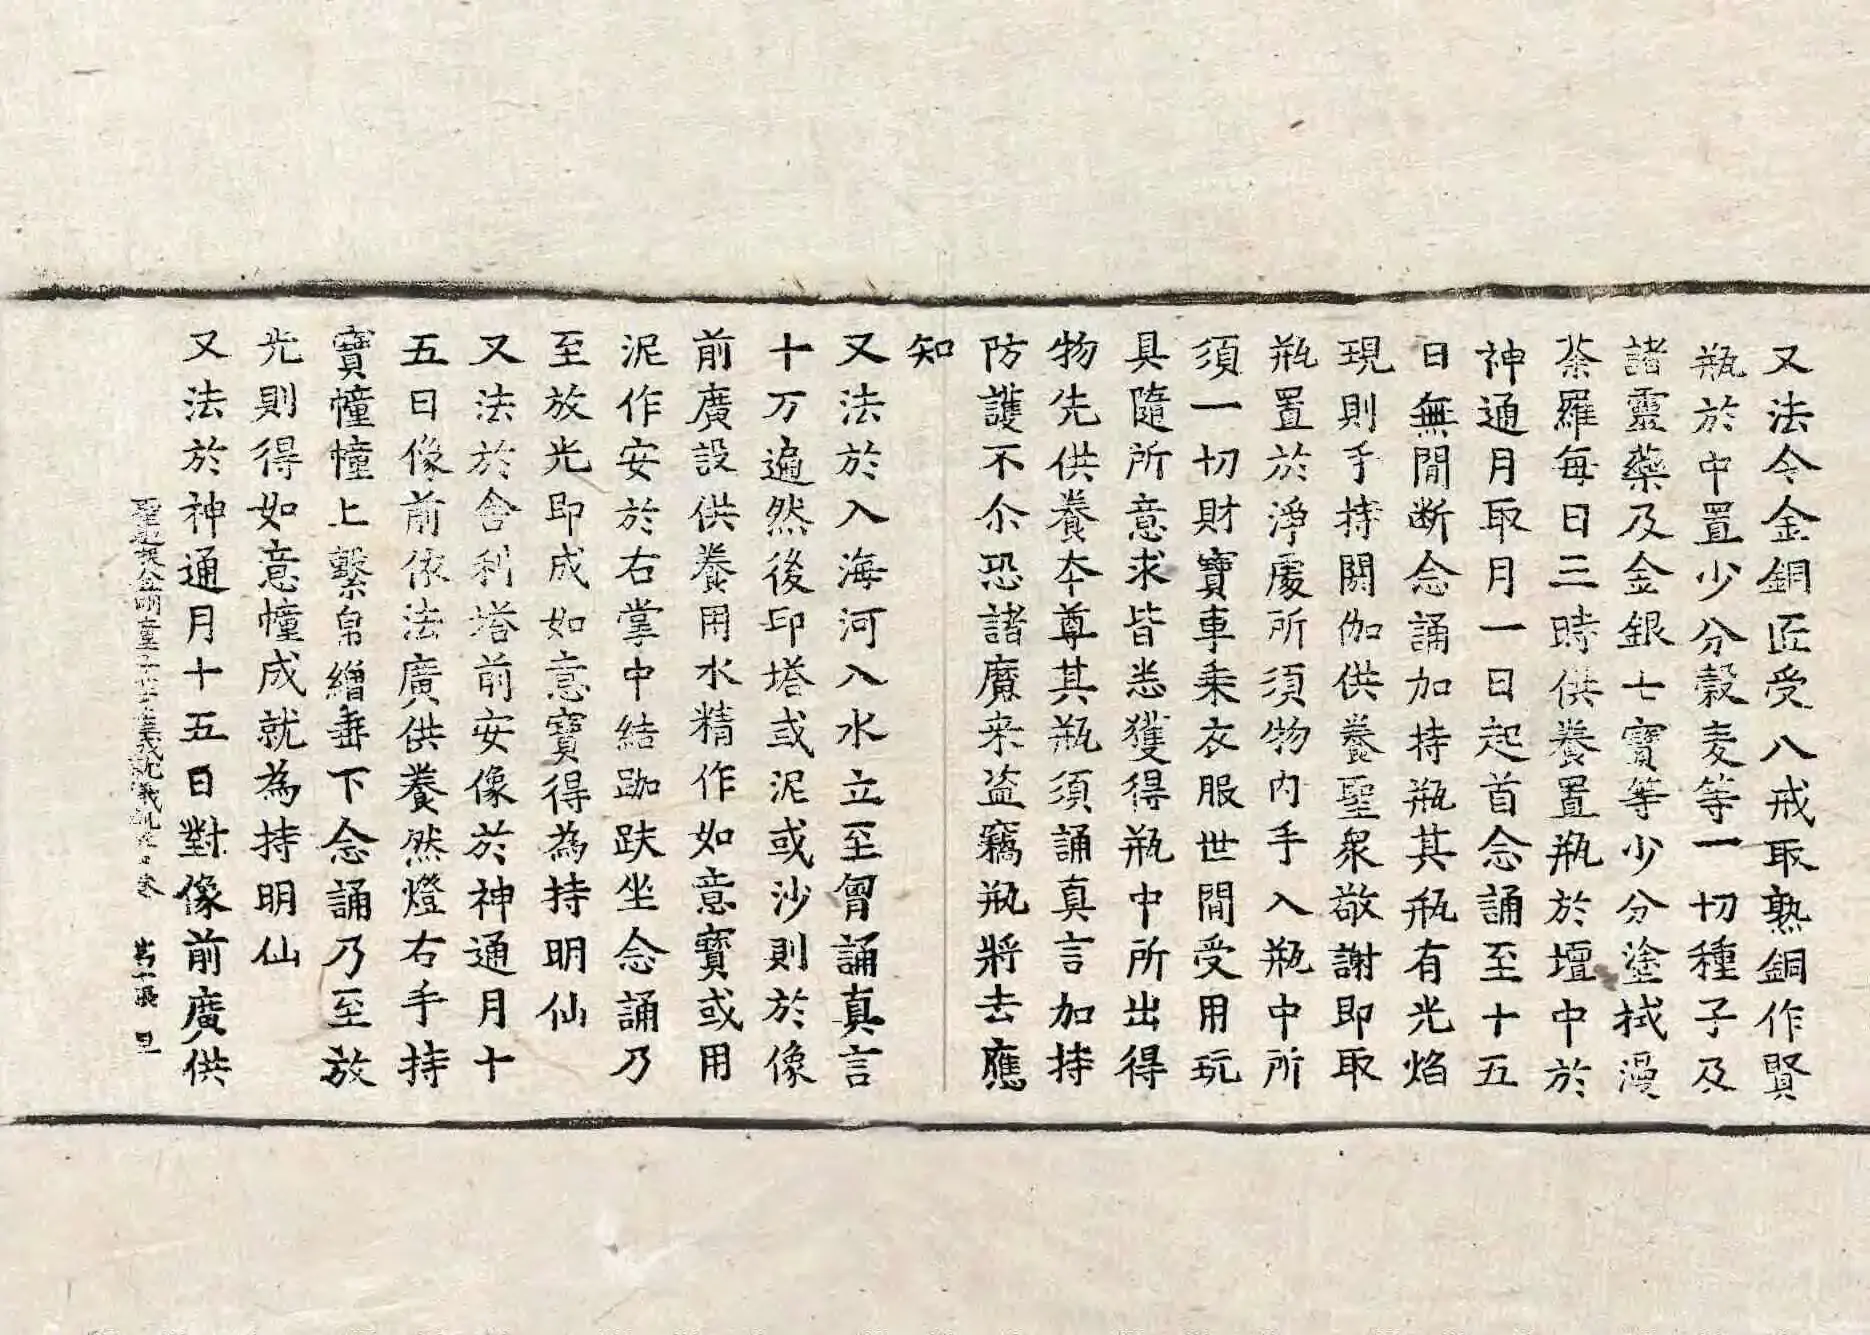 又法令金銅匠受八戒取熟銅作賢
瓶於中置少分穀麦等一切種子及
諸靈藥及金銀七寶等少分塗拭漫
荼羅每日三時供養置瓶於壇中於
神通月取月一日起首念誦至十五
日無間断念誦加持瓶其瓶有光焰
現則手持閼伽供養聖衆敬謝即取
瓶置於淨處所須物內手入瓶中所
須一切財寶車乗衣服世間受用玩
具隨所意求皆悉獲得瓶中所出得
物先供養夲尊其瓶須誦真言加持
防護不尒恐諸魔来盗竊瓶將去應
知
又法於入海河入水立至胷誦真言
十万遍然後印塔或泥或沙則於像
前廣設供養用水精作如意寶或用
泥作安於右掌中結跏趺坐念誦乃
至放光即成如意寶得為持明仙
又法於舍利塔前安像於神通月十
五日像前依法廣供養然燈右手持
寶幢幢上繫帛繒垂下念誦乃至放
光則得如意幢成就為持明仙
又法於神通月十五日對像前廣供